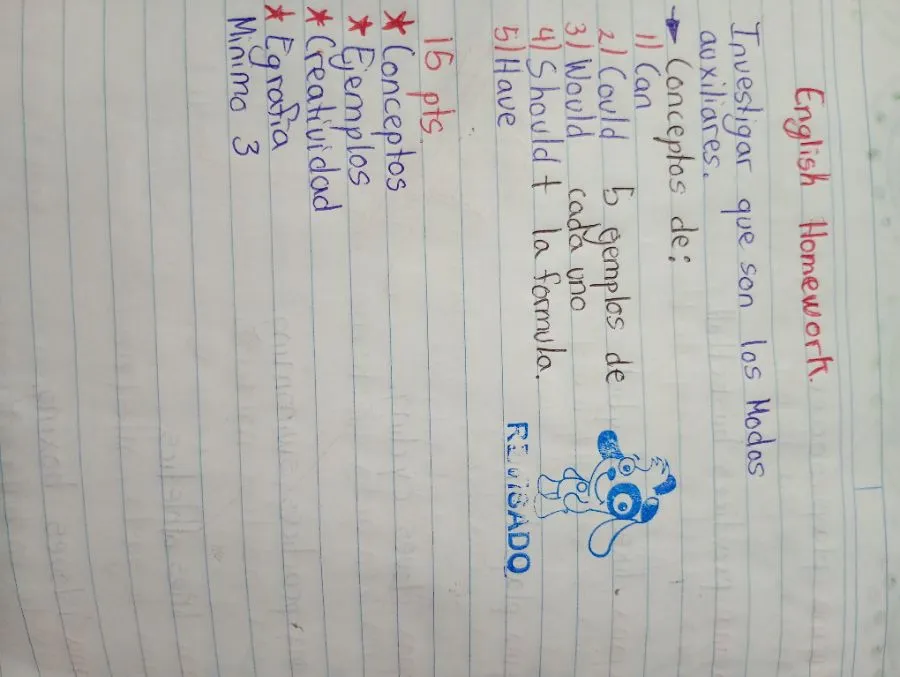 English Homework.
Investigar que son los Modos
auxiliares.
→ Conceptos de:
1) Can
2) Could 5 ejemplos de
3) Would cada uno
4) Should + la formula.
5) Have
REVISADO
15 pts
★ Conceptos
★ Ejemplos
★ Creatividad
★ Egrafia
Minimo 3